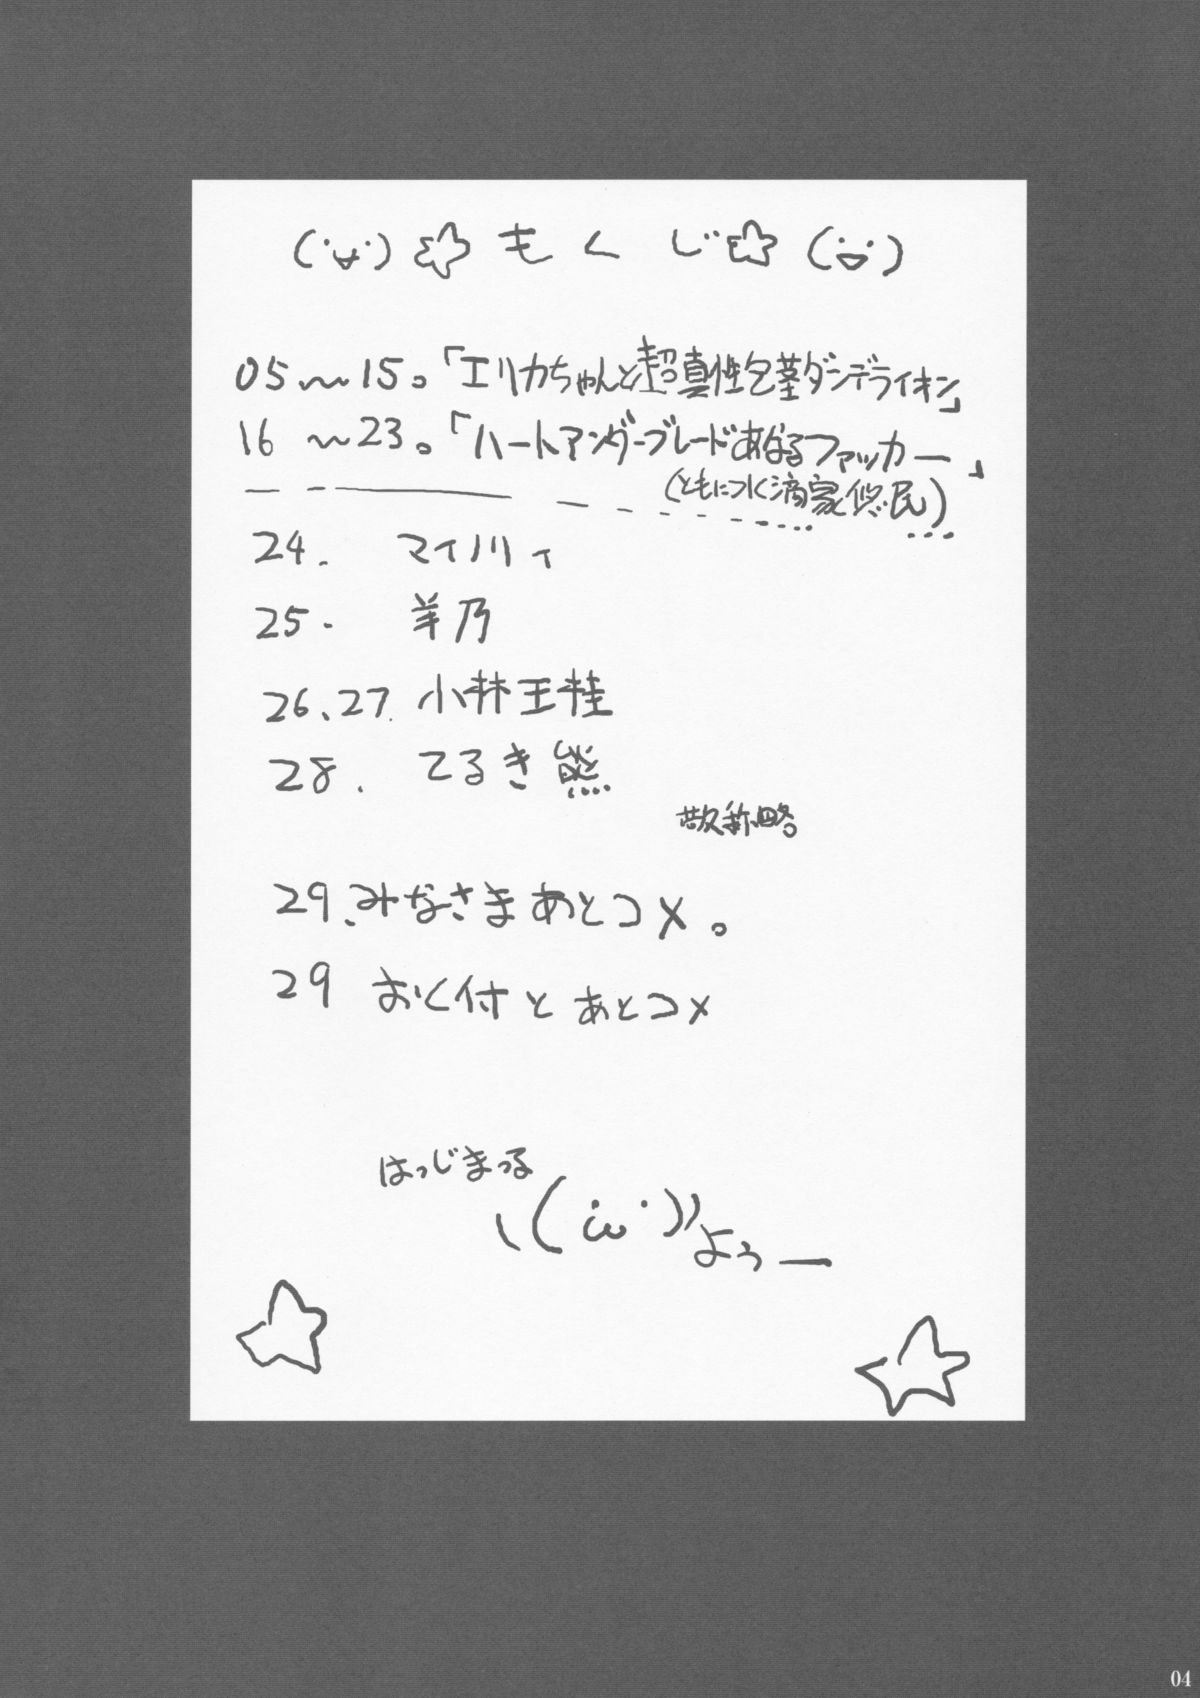 (˙v˙) ☆ もくじ ☆ (˙▽˙)
05～15。「エリカちゃんと超真性包茎ダンデライオン」
16～23。「ハートアンダーブレードあなるファッカー」
(ともにつくしの家悠民)
24. マイノリィ
25. 羊乃
26、27. 小林王桂
28. てるき熊
敬称略。
29、みなさまあとコメ。
29 おく付とあとコメ
はっじまっる
ヽ(˙ω˙)ﾉよぅー
04